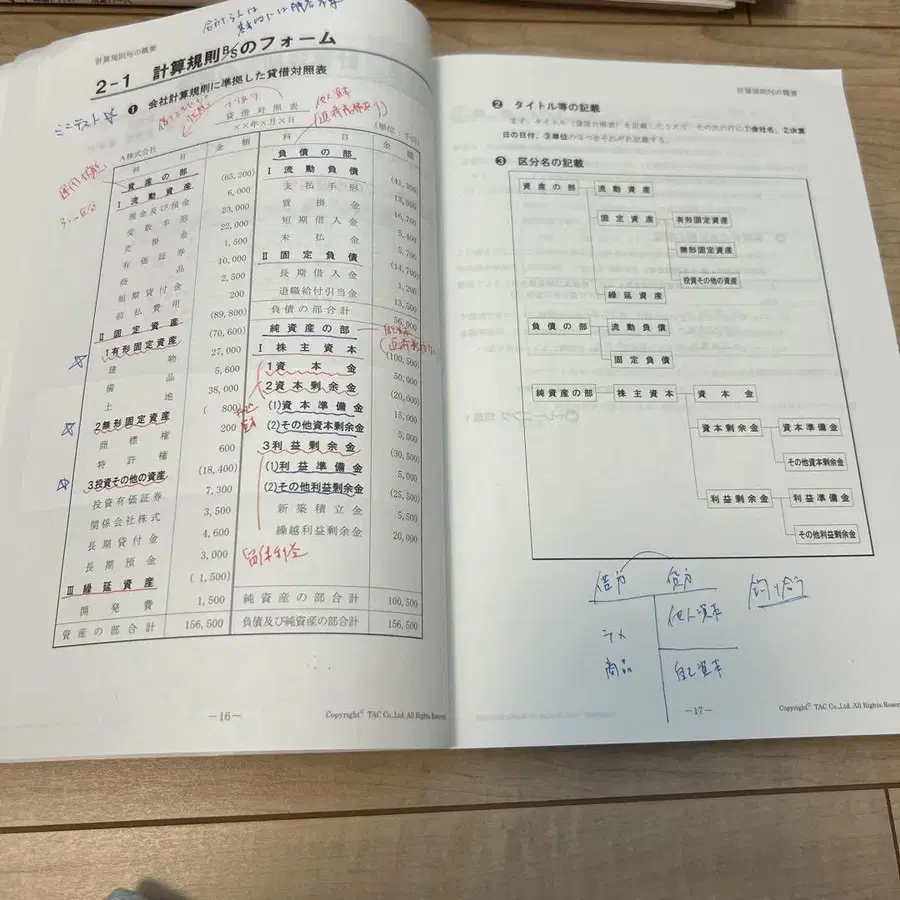 計算規則等の概要
2-1 計算規則B/Sのフォーム
ミニテスト
❶ 会社計算規則に準拠した貸借対照表
他人資本
貸借対照表
××年×月×日
A株式会社 (単位:千円)
科 目 金 額 科 目 金 額
資産の部 負債の部
Ⅰ 流動資産 (65,200) Ⅰ 流動負債
現金及び預金 6,000 支払手形
受取手形 23,000 買掛金
売掛金 22,000 短期借入金
有価証券 1,500 未払金 5,700
商品 10,000 Ⅱ 固定負債 (14,700)
短期貸付金 2,500 長期借入金 1,200
前払費用 200 退職給付引当金 13,500
Ⅱ 固定資産 (89,800) 負債の部合計 56,000
1有形固定資産 (70,600) 純資産の部
建物 27,000 Ⅰ 株主資本 (100,500)
備品 5,600 1資本金 50,000
土地 38,000 2資本剰余金 (20,000)
2無形固定資産 ( 800) (1)資本準備金 15,000
商標権 200 (2)その他資本剰余金 5,000
特許権 600 3利益剰余金 (30,500)
3投資その他の資産 (18,400) (1)利益準備金 5,000
投資有価証券 7,300 (2)その他利益剰余金 (25,500)
関係会社株式 3,500 新築積立金 5,500
長期貸付金 4,600 繰越利益剰余金 20,000
長期預金 3,000
Ⅲ 繰延資産 ( 1,500)
開発費 1,500 純資産の部合計 100,500
資産の部合計 156,500 負債及び純資産の部合計 156,500
-16-
Copyright© TAC Co.,Ltd. All Rights Reser
計算規則等の概要
❷ タイトル等の記載
まず、タイトル(貸借対照表)を記載したうえで、その次の行に①会社名、②決算
日の日付、③単位の3つをそれぞれ記載する。
❸ 区分名の記載
資産の部 流動資産
固定資産 有形固定資産
無形固定資産
投資その他の資産
繰延資産
負債の部 流動負債
固定負債
純資産の部 株主資本 資本金
資本剰余金 資本準備金
その他資本剰余金
利益剰余金 利益準備金
その他利益剰余金
借方 貸方 釣り合う
他人資本
商品 自己資本
-17-
Copyright© TAC Co.,Ltd. All Rights Reser